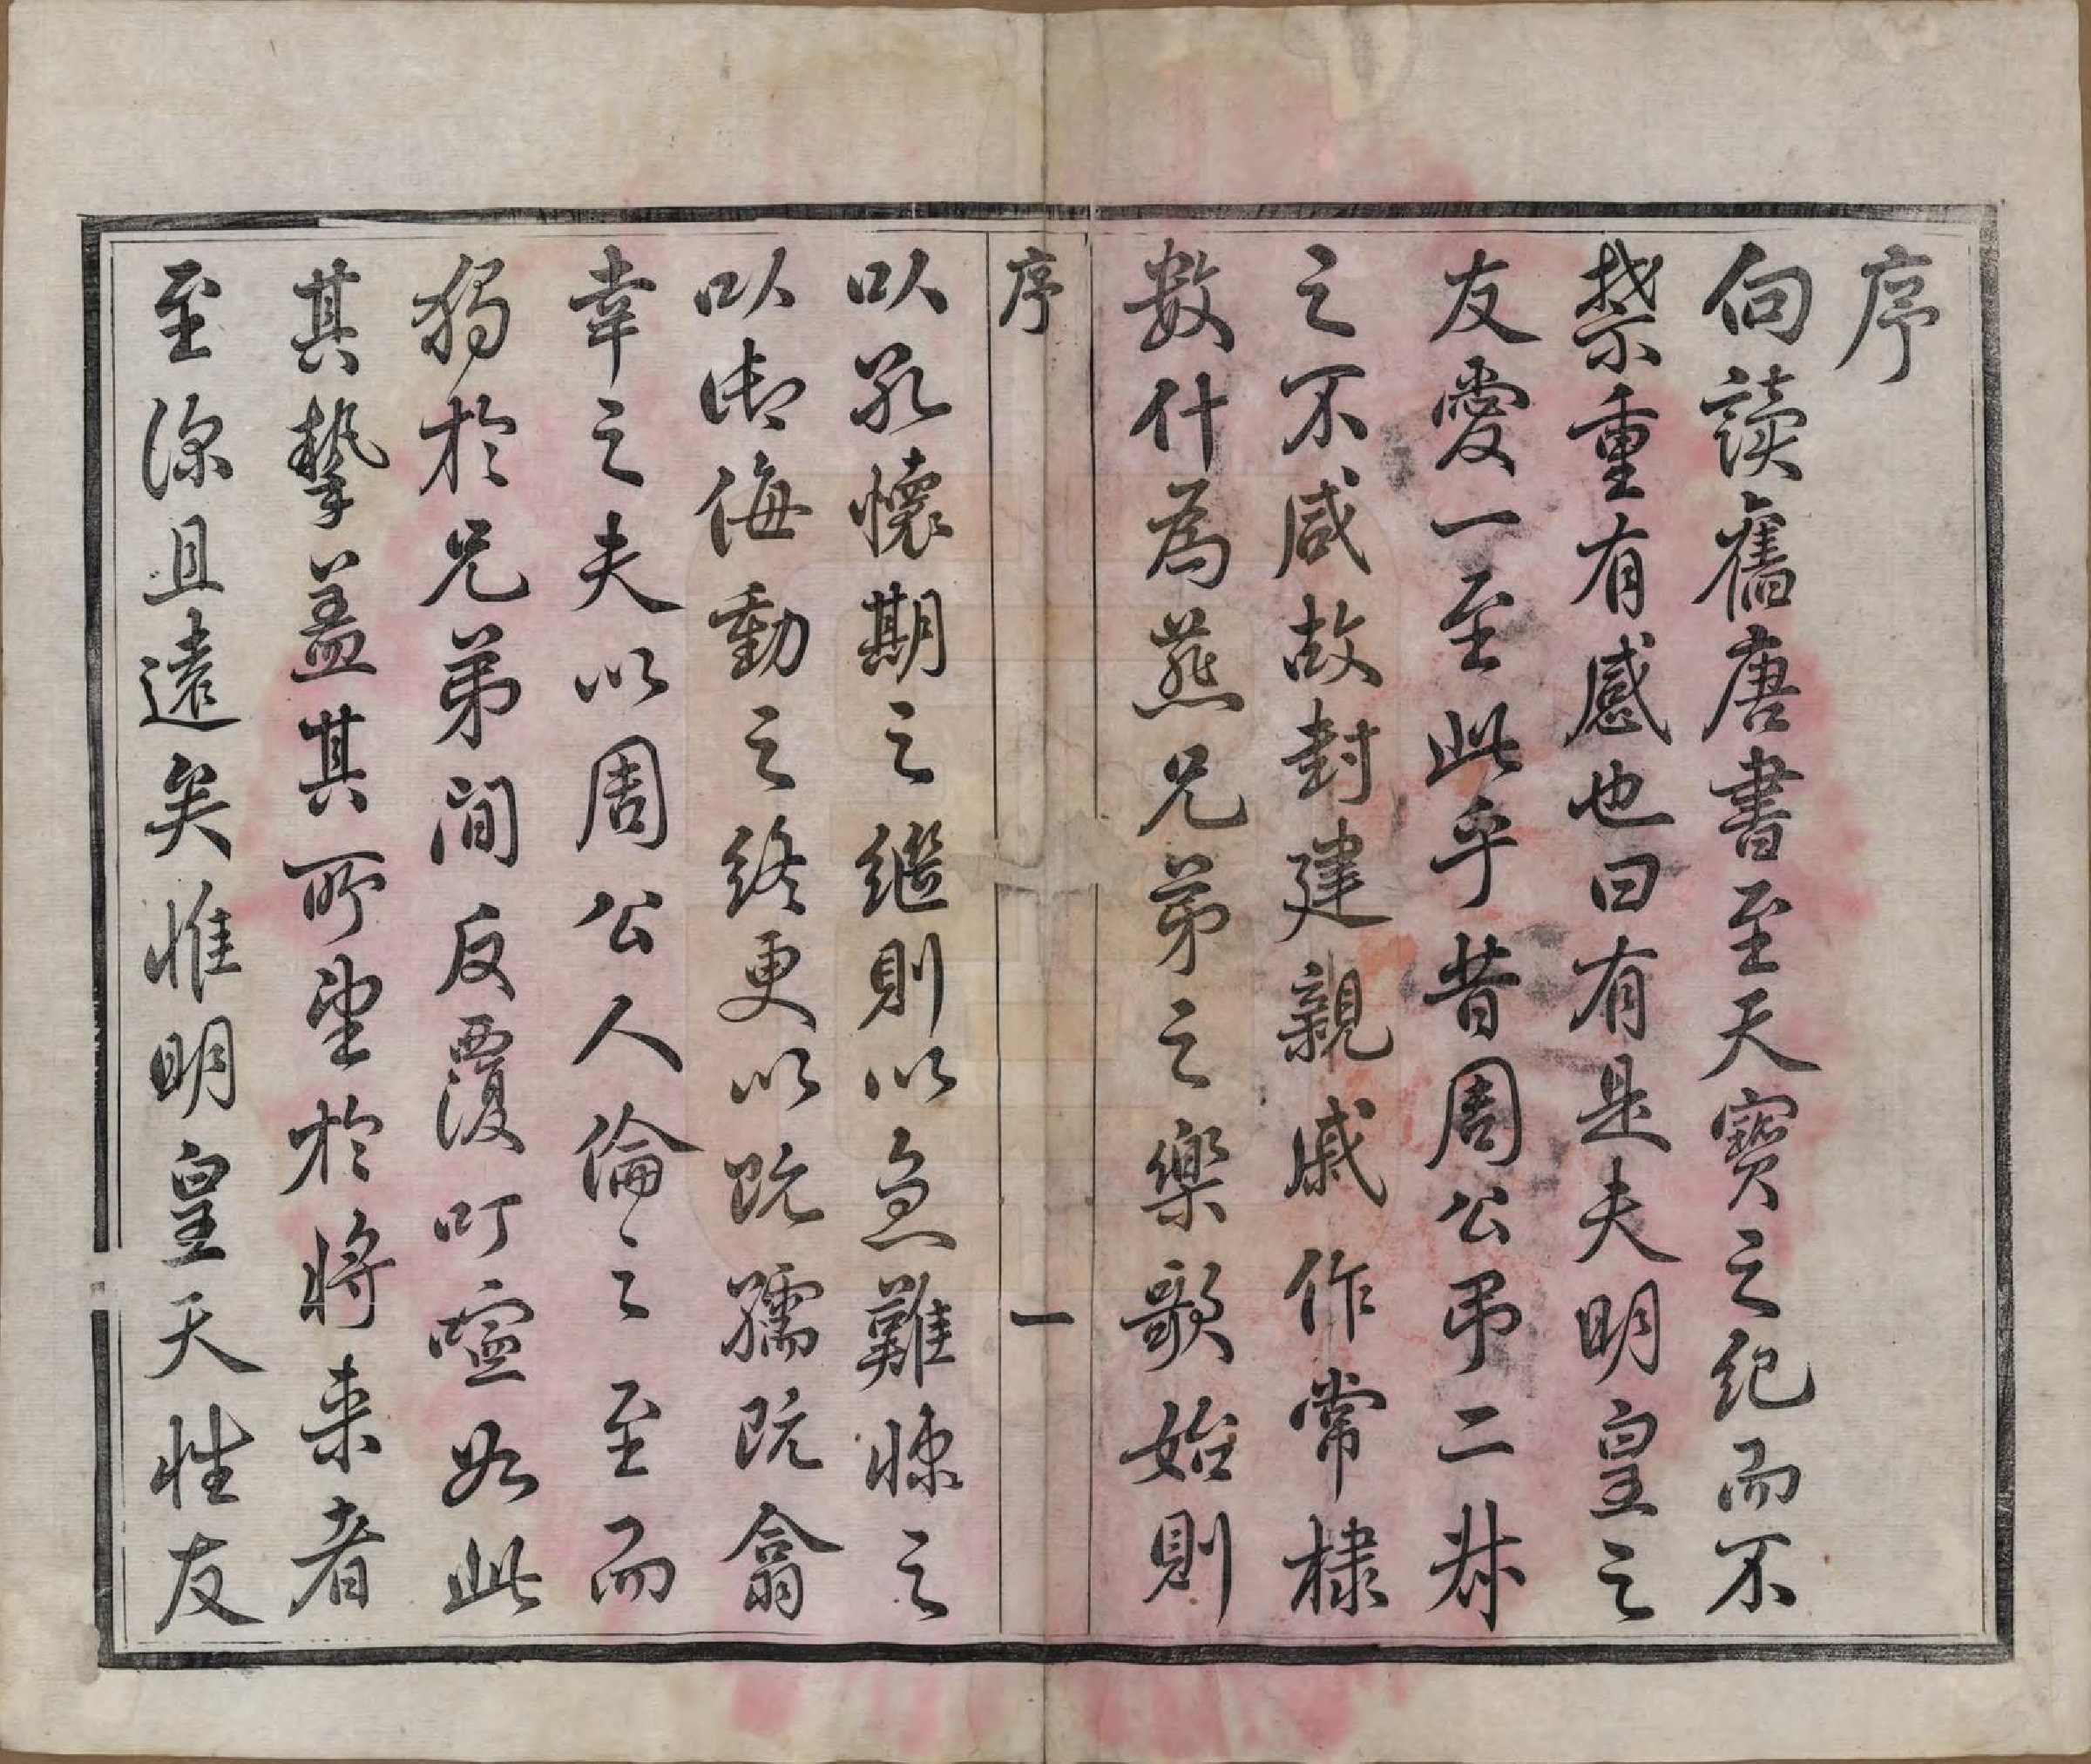 序
向讀舊唐書至天寶之紀而不
禁重有感也曰有是夫明皇之
友愛一至此乎昔周公弔二叔
之不咸故封建親戚作常棣
數什為燕兄弟之樂歌始則
序
一
以孔懷期之繼則以急難悚之
以御侮動之終更以既孺既翕
幸之夫以周公人倫之至而
獨於兄弟間反覆叮嚀如此
其摯蓋其所望於將来者
至深且遠矣惟明皇天性友